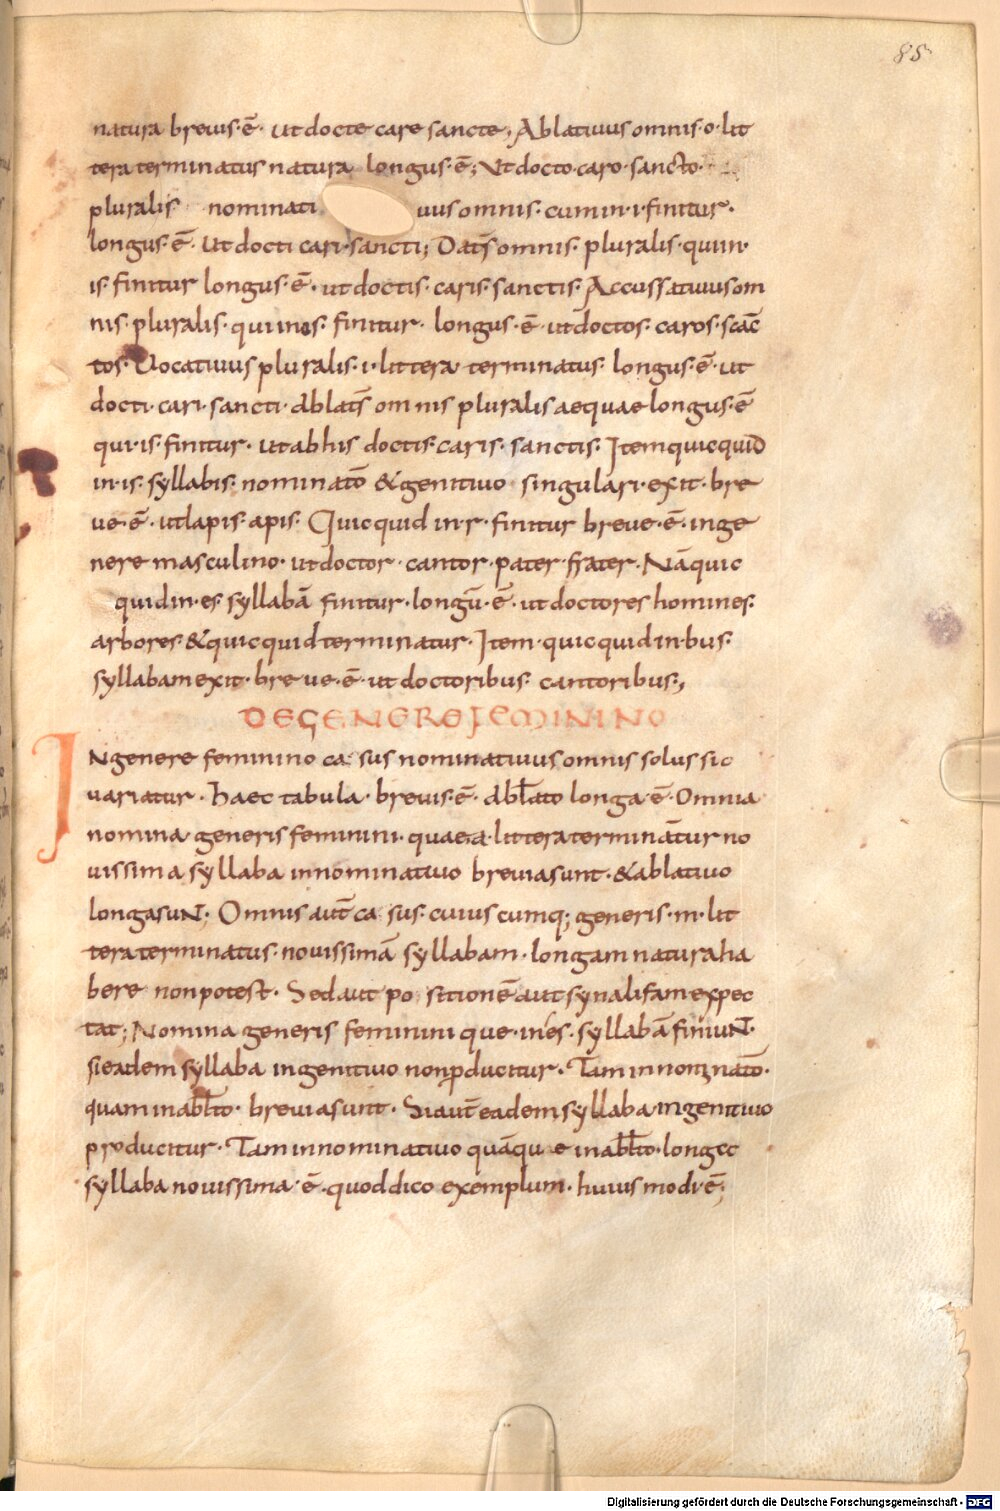 85
natura breuis·ē· ut docte care sancte; Ablatiuus omnis·o·lit
tera terminatus natura longus·ē; Ut docto·caro·sancto·
pluralis nominati uus omnis·cum in·i·finitur·
longus·ē· Ut docti cari·sancti; Datis̄ omnis·pluralis·qui in·
is·finitur longus·ē· ut doctis·caris·sanctis· Accussatiuus om
nis·pluralis·qui in os·finitur· longus·ē· ut doctos·caros·scāc
tos· Uocatiuus pluralis·i·littera terminatus· longus·ē· ut
docti·cari·sancti· Ablatis̄ omnis pluralis aequae longus·ē
qui·is·finitur· ut ab his doctis·caris·sanctis· Item quicquid
in·is·syllabis·nominatō & genitiuo singulari·exit·bre
ue·ē· ut lapis·apis· Quicquid in·r·finitur breue·ē· in ge
nere masculino· ut doctor·cantor·pater·frater· Nā quic
quid in·es·syllabā finitur·longū·ē· ut doctores homines·
arbores·& quicquid terminatur· Item·quicquid in·bus·
syllabam exit·breue·ē· ut doctoribus cantoribus;
DE GENERE FEMININO
IN genere feminino ca sus nominatiuus omnis solus sic
uariatur· haec tabula·breuis·ē· abl̄ato longa·ē· Omnia
nomina generis feminini·quae a·littera terminant̄ur no
uissima syllaba in nominatiuo breuia sunt·& ablatiuo
longa suN; Omnis aut̄ ca sus·cuius cumq; generis·m·lit
tera terminatus·nouissimā syllabam·longam natura ha
bere non potest· Sed aut po sitionē aut synalifam expec
tat; Nomina generis feminini que·in es·syllabā finiuN̄·
si eadem syllaba in genitiuo non producitur· Tam in nominatō·
quam in abl̄to· breuia sunt· Si aut̄ eadem syllaba in genitiuo
producitur· Tam in nominatiuo quā que in abl̄to·longe
syllaba nouissima·ē·quod dico exemplum·huius modi ē;
Digitalisierung gefördert durch die Deutsche Forschungsgemeinschaft - DFG